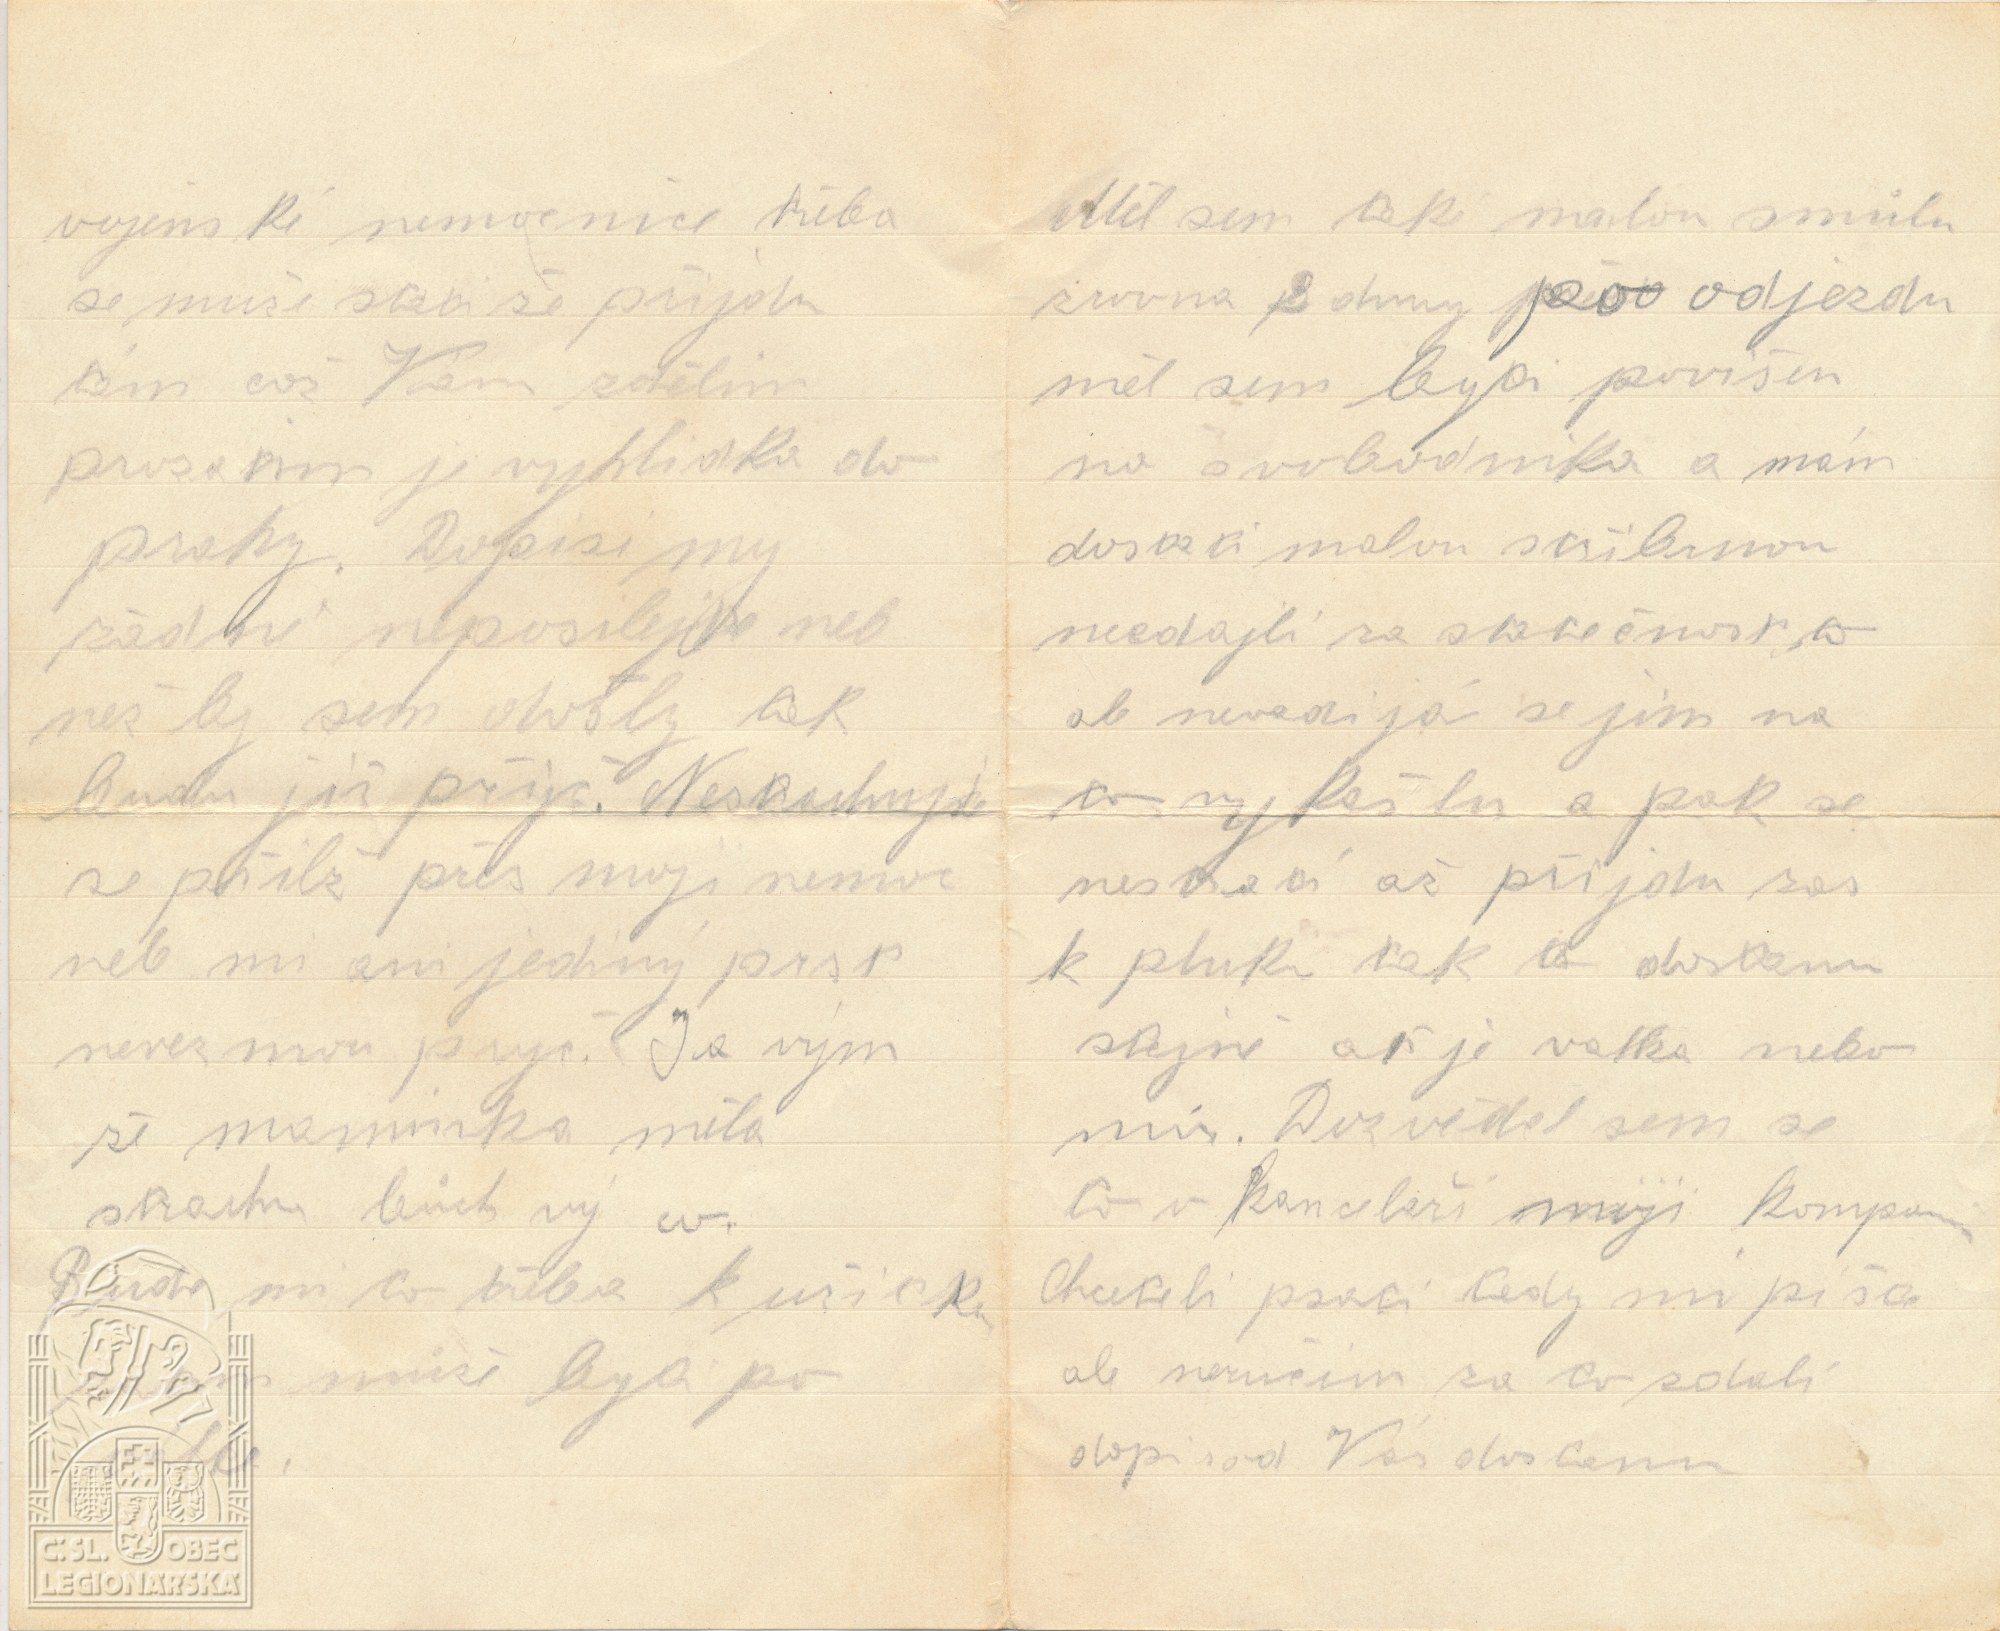 vojenské nemocnice třeba
se muže stati že přijdu
tám což Vám zdělim
prozatim je vyhlidka do
prahy. Dopisi my
žádné neposilejte neb
než by sem došly tak
budu již pryč. Nestrachujte
se přilž přes moji nemoc
neb mi ani jediný prst
nevezmou pryč. Ja vým
že maminka měla
strachu bůch vý co.
Bude mi to třeba k užitku
muže byti po
Měl sem také malou smůlu
zrovna 8 dnuy odjezdu
měl sem byti povišen
na svobodnika a mám
dostati malou střibrnou
nedajli za statečnost, to
ale nevadi já se jim na
to vykašlu a pak se
nestrati až přijdu zas
k pluku tak to dostanu
stejně ať je valka nebo
mir. Dozvěděl sem se
to v kanceláři moji kompani
Chceteli psati tedy mi pište
ale neručim za to zdali
dopis od Vás dostanu
Č. SL. OBEC
LEGIONÁŘSKÁ